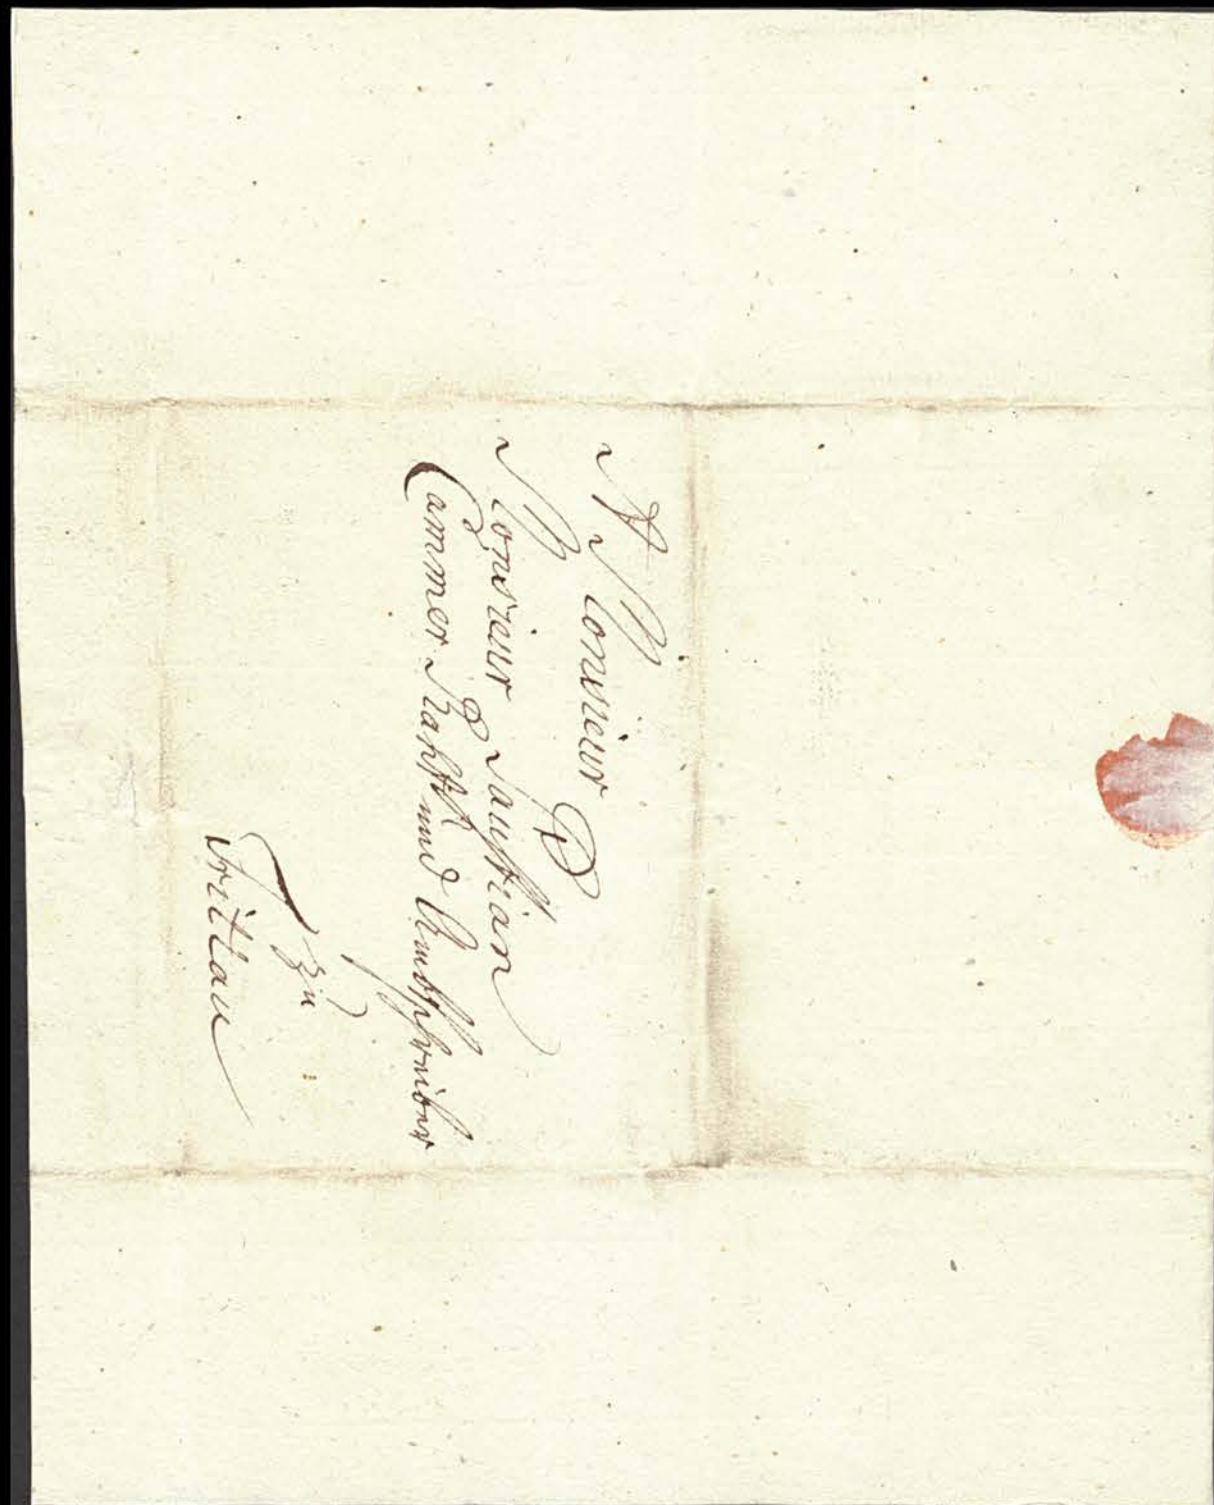 A Monsieur
Monsieur Paustian
Cammer Rahtt und Amdtschreiber
zu
Trittau